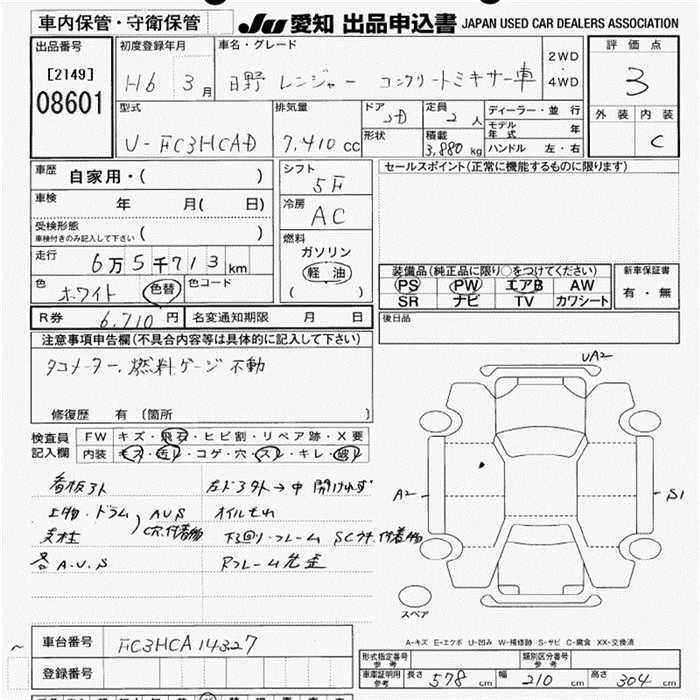 車内保管・守衛保管
JU 愛知 出品申込書 JAPAN USED CAR DEALERS ASSOCIATION
出品番号
[2149]
08601
初度登録年月
H6 3月
車名・グレード
日野 レンジャー コンクリートミキサー車
2WD
・
4WD
評価点
3
外装 内装
C
型式
U-FC3HCAD
排気量
7,410 cc
ドア
2D
形状
定員
2人
積載
3,880 kg
ディーラー・並行
モデル年式 年
ハンドル 左・右
車歴
自家用・( )
車検
年 月( 日)
受検形態
車検付きのみ記入して下さい ( )
走行
6万5千713km
色
ホワイト 色替
色コード
シフト
5F
冷房
AC
燃料
ガソリン
軽油
( )
セールスポイント(正常に機能するものに限ります)
装備品(純正品に限り○をつけてください)
PS PW エアB AW
SR ナビ TV カワシート
新車保証書
有・無
R券 6,710円 名変通知期限 月 日
後日品
注意事項申告欄(不具合内容等は具体的に記入して下さい)
タコメーター、燃料ゲージ不動
修復歴 有 〔箇所 〕
検査員
記入欄
FW キズ・飛石・ヒビ割・リペア跡・X要
内装 キズ・汚レ・コゲ・穴・スレ・キレ・破レ
看板外ト 左ドア外ト→中 開けれず
上物・ドラム AUS オイルもれ
支柱 C穴付着物 下回り・フレーム SCサ付着物
各A.U.S Rフレーム先歪
UA2
A2
S1
スペア
A-キズ E-エクボ U-凹み W-補修跡 S-サビ C-腐食 XX-交換済
車台番号 FC3HCA14327
登録番号
形式指定番号
参考
類別区分番号
参考
車庫証明用
参考
長さ 578 cm 幅 210 cm 高さ 304 cm